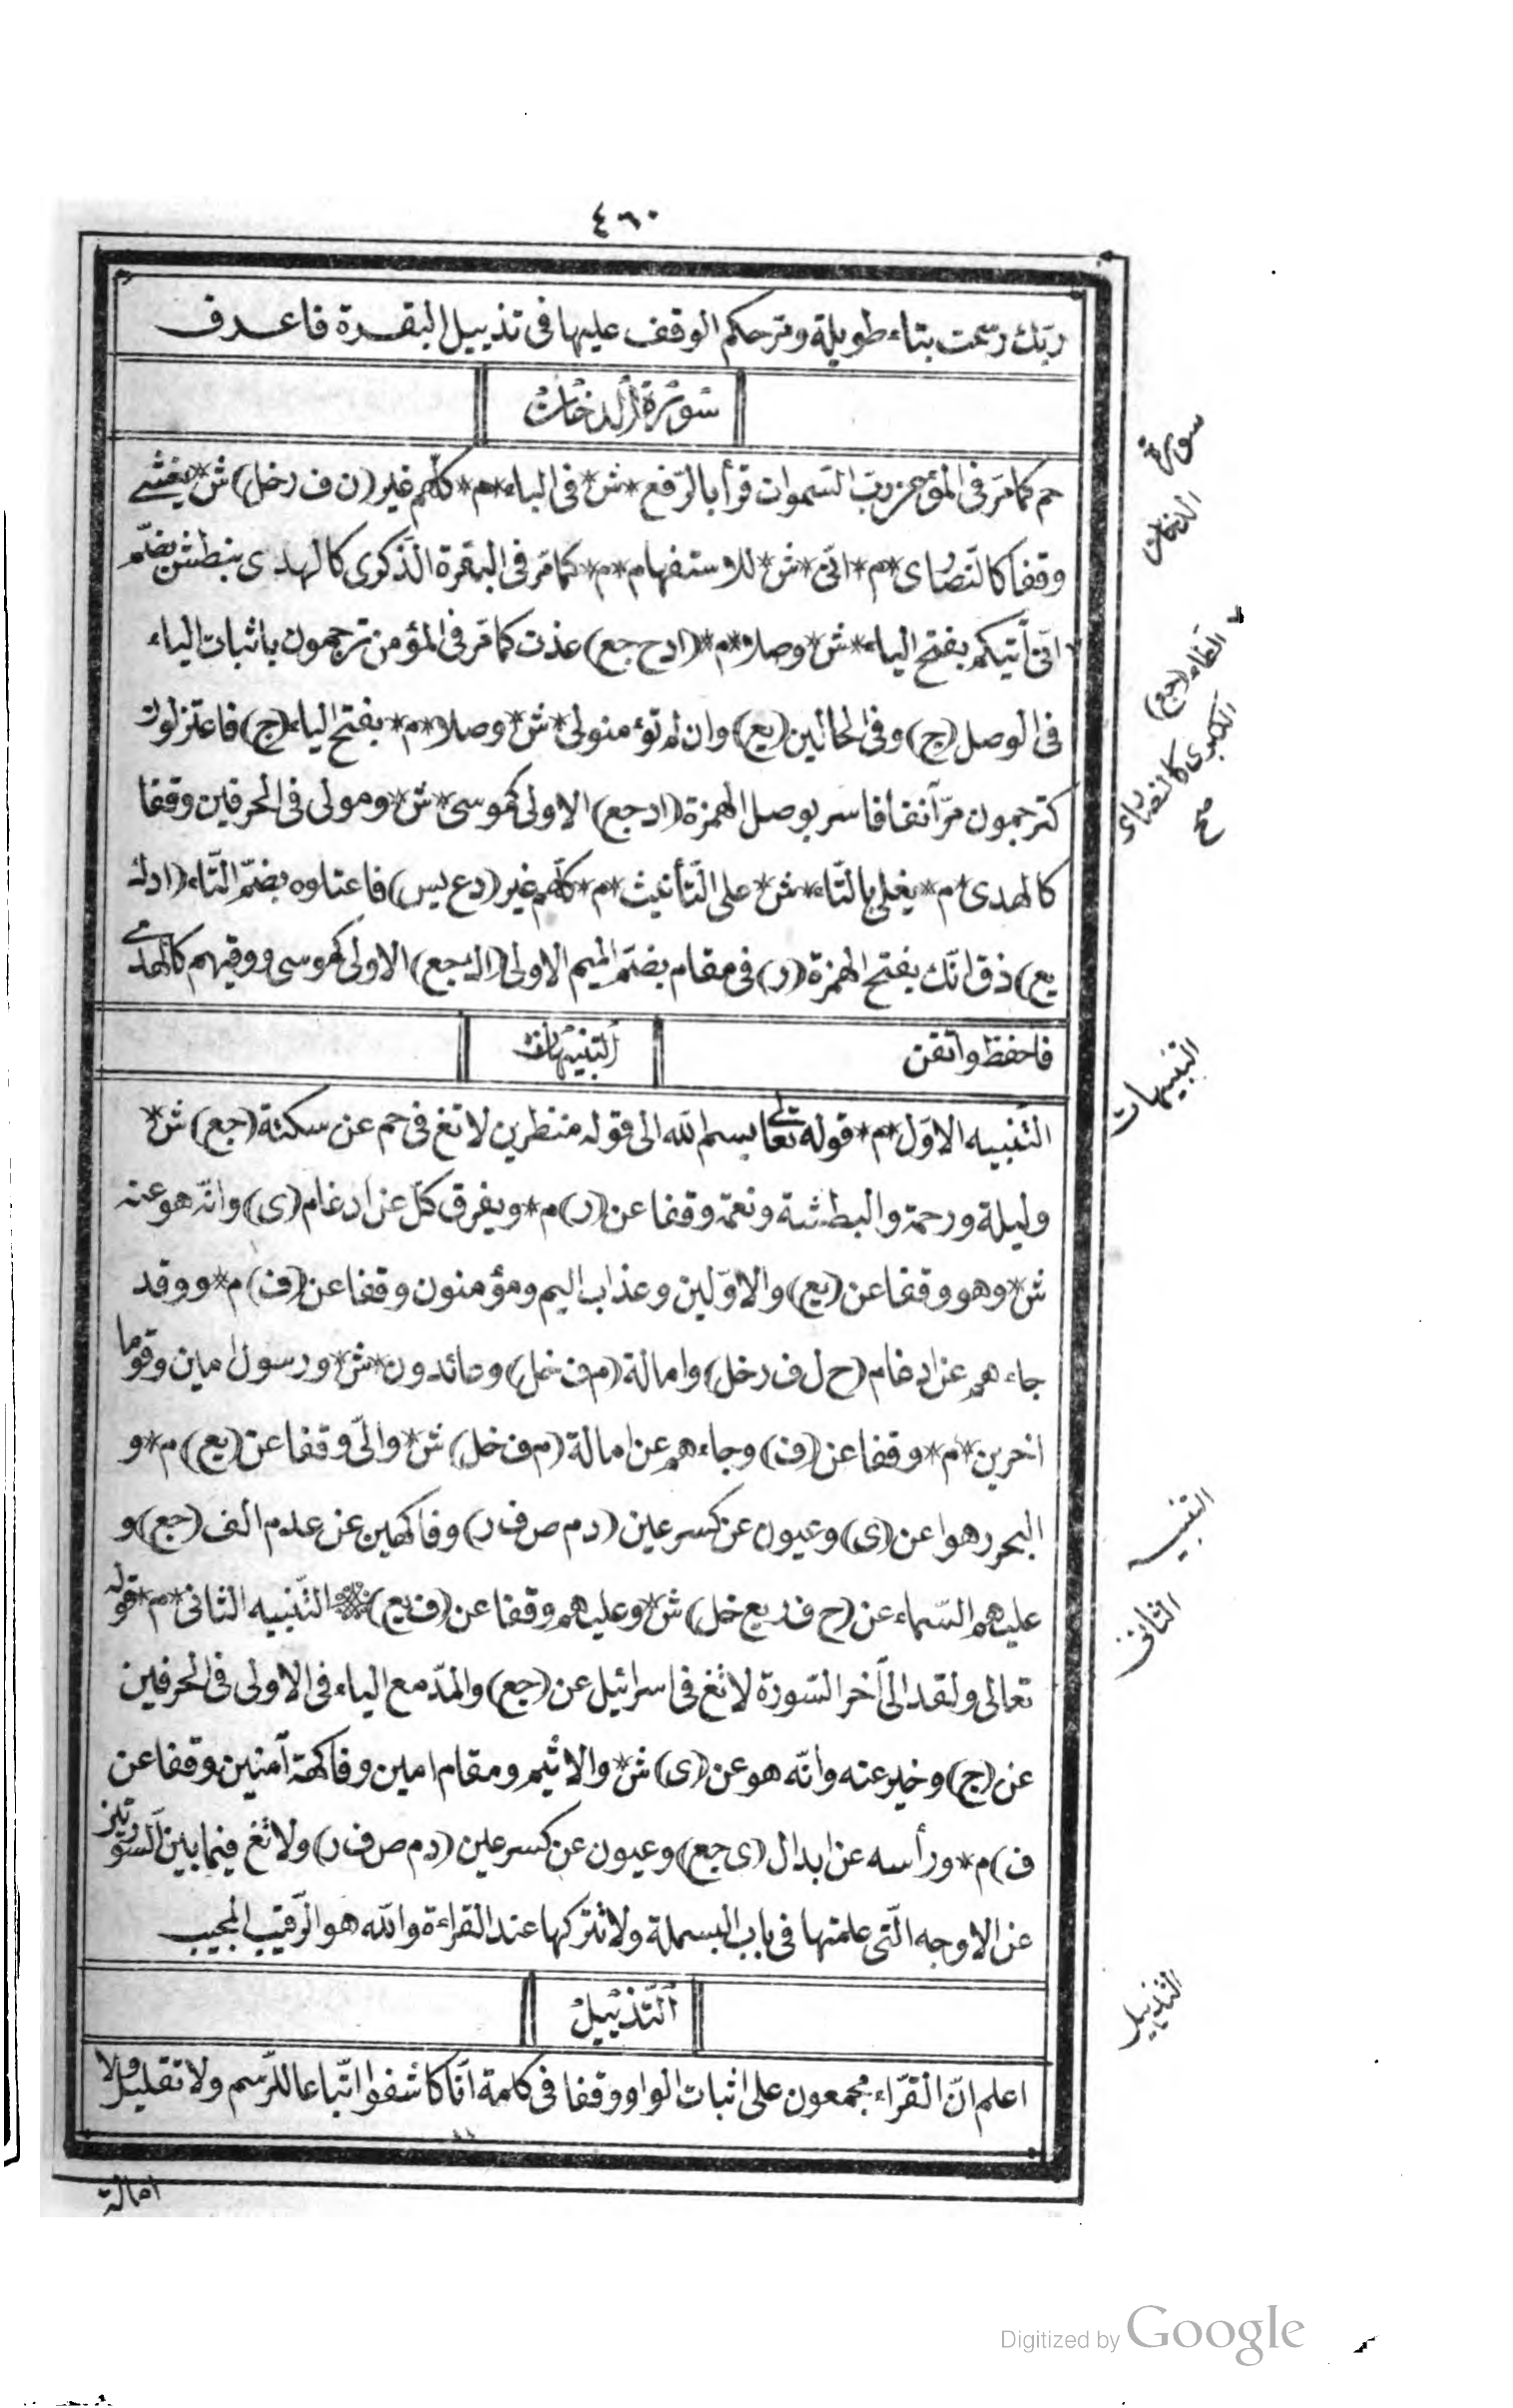 ٤٦٠
ربّك رسمت بتاء طويلة ومرّ حكم الوقف عليها فى تذييل البقرة فاعرف
سورة الدخان
حم كما مرّ فى المؤمن ربّ السّموات قرأ بالرّفع *ش* فى الباء *م* كلّهم غير (ن ف ر خل) ش* يغشى
وقفا كالنّصارى *م* انّى *ش* للاستفهام *م* كما مرّ فى البقرة الذّكرى كالهدى نبطش بضمّ
انّى آتيكم بفتح الياء *ش* وصلا *م* (ا د ح جع) عذت كما مرّ فى المؤمن ترجمون باثبات الياء
فى الوصل (ج) وفى الحالين (يع) وان لم تؤمنولى *ش* وصلا *م* بفتح الياء (ج) فاعتزلون
كترجمون مرّ آنفا فاسر بوصل الهمزة (ا د جع) الاولى كموسى *ش* ومولى فى الحرفين وقفا
كالهدى *م* يغلى بالتّاء *ش* على التّأنيث *م* كلّهم غير (د ع يس) فاعتلوه بضمّ التّاء (ا د ك
يع) ذق انّك بفتح الهمزة (ر) فى مقام بضمّ الميم الاولى (ا ك جع) الاولى كموسى ووقيهم كالهدى
فاحفظ واتقن
التّنبيهات
التّنبيه الاوّل *م* قوله تعالى بسم الله الى قوله منظرين لا تغ فى حم عن سكتة (جع) ش*
وليلة ورحمة والبطشة ونعمة وقفا عن (ر) م* ويفرق كلّ عن ادغام (ى) وانّه هو عنه
ش* وهو وقفا عن (يع) والاوّلين وعذاب اليم ومؤمنون وقفا عن (ف) م* ووقد
جاءهم عن ادغام (ح ل ف ر خل) وامالة (م ف خل) وعائدون *ش* ورسول امين وقوما
اخرين *م* وقفا عن (ف) وجاءهم عن امالة (م ف خل) ش* والىّ وقفا عن (يع) م* و
البحر رهوا عن (ى) وعيون عن كسر عين (د م ص ف ر) وفاكهين عن عدم الف (جع) و
عليهم السّماء عن (ح ف ر يع خل) ش* وعليهم وقفا عن (ف يع) التّنبيه الثانى *م* قوله
تعالى ولقد الى آخر السّورة لا تغ فى اسرائيل عن (جع) والمدّ مع الياء فى الاولى فى الحرفين
عن (ج) وخير عنه وانّه هو عن (ى) ش* والاثيم ومقام امين وفاكهة آمنين وقفا عن
ف) م* ورأسه عن ابدال (ى جع) وعيون عن كسر عين (د م ص ف ر) ولا تغ فيما بين السّورتين
عن الاوجه الّتى علمتها فى باب البسملة ولا تتركها عند القراءة والله هو الرّقيب المجيب
التّذييل
اعلم انّ القرّاء مجمعون على اثبات الواو وقفا فى كلمة انّا كاشفوا اتّباعا للرّسم ولا تقليل ولا
امالة
سورة
الدخان
الطاء (جع)
الكبرى كالنصارى
صح
التنبيهات
التنبيه
الثانى
التذييل
Digitized by Google